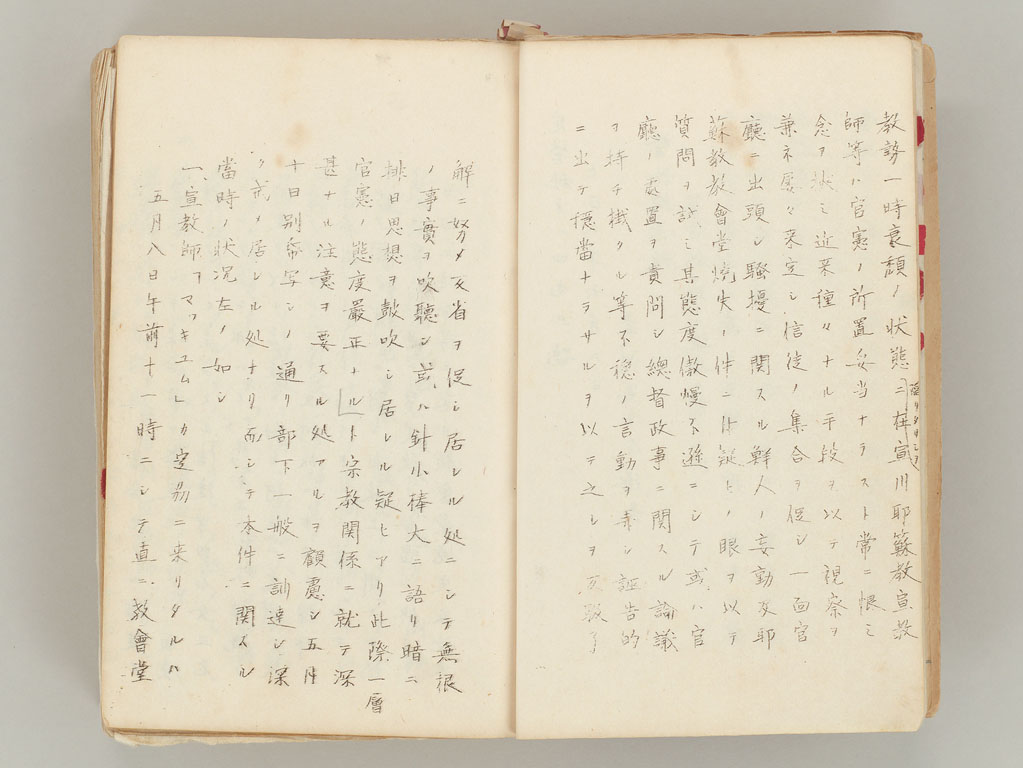 教勢一時衰頽ノ状態ニ在宣川耶蘇教宣教
師等ハ官憲ノ所置妥当ナラスト常ニ恨ミ
念ヲ挟ミ近来種々ナル手段ヲ以テ視察ヲ
兼ネ屡々来定シ信徒ノ集合ヲ促シ一面官
廳ニ出頭シ騒擾ニ関スル鮮人ノ妄動及耶
蘇教教會堂焼失ノ件ニ付疑ヒノ眼ヲ以テ
質問ヲ試ミ其態度傲慢不遜ニシテ或ハ官
廳ノ處置ヲ責問シ總督政事ニ関スル論議
ヲ持チ掛クル等不穏ノ言動ヲ弄シ誣告的
ニ出テ穏當ナラサルヲ以テ之レヲ反駁了
解ニ努メ反省ヲ促シ居レル処ニシテ無根
ノ事實ヲ吹聴シ或ハ針小棒大ニ語リ暗ニ
排日思想ヲ鼓吹シ居レル疑ヒアリ此際一層
官憲ノ態度嚴正ナルト宗教関係ニ就テ深
甚ナル注意ヲ要スル処アルヲ顧慮シ五月
十日別帋写シノ通リ部下一般ニ訓達シ深
ク戒メ居レル処ナリ而シテ本件ニ関スル
當時ノ状況左ノ如シ
一、宣教師ヲマッキユムレカ定州ニ来リタルハ
五月八日午前十一時ニシテ直ニ教會堂